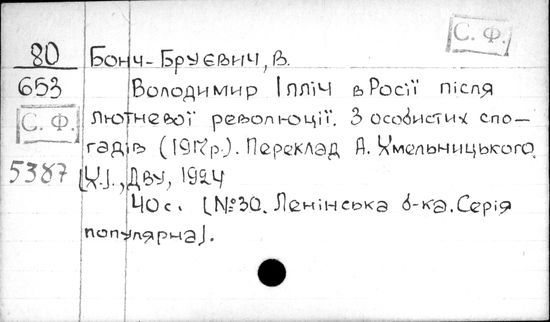 С. Ф.
80 Бонч-Бруєвич, В.
653 Володимир Ілліч в Росії після
лютневої революції. З особистих спо-
С. Ф. гадів (1917р.). Переклад А. Хмельницького.
5387 [Х.], ДВУ, 1924
40с. [№30. Ленінська б-ка. Серія
популярна].